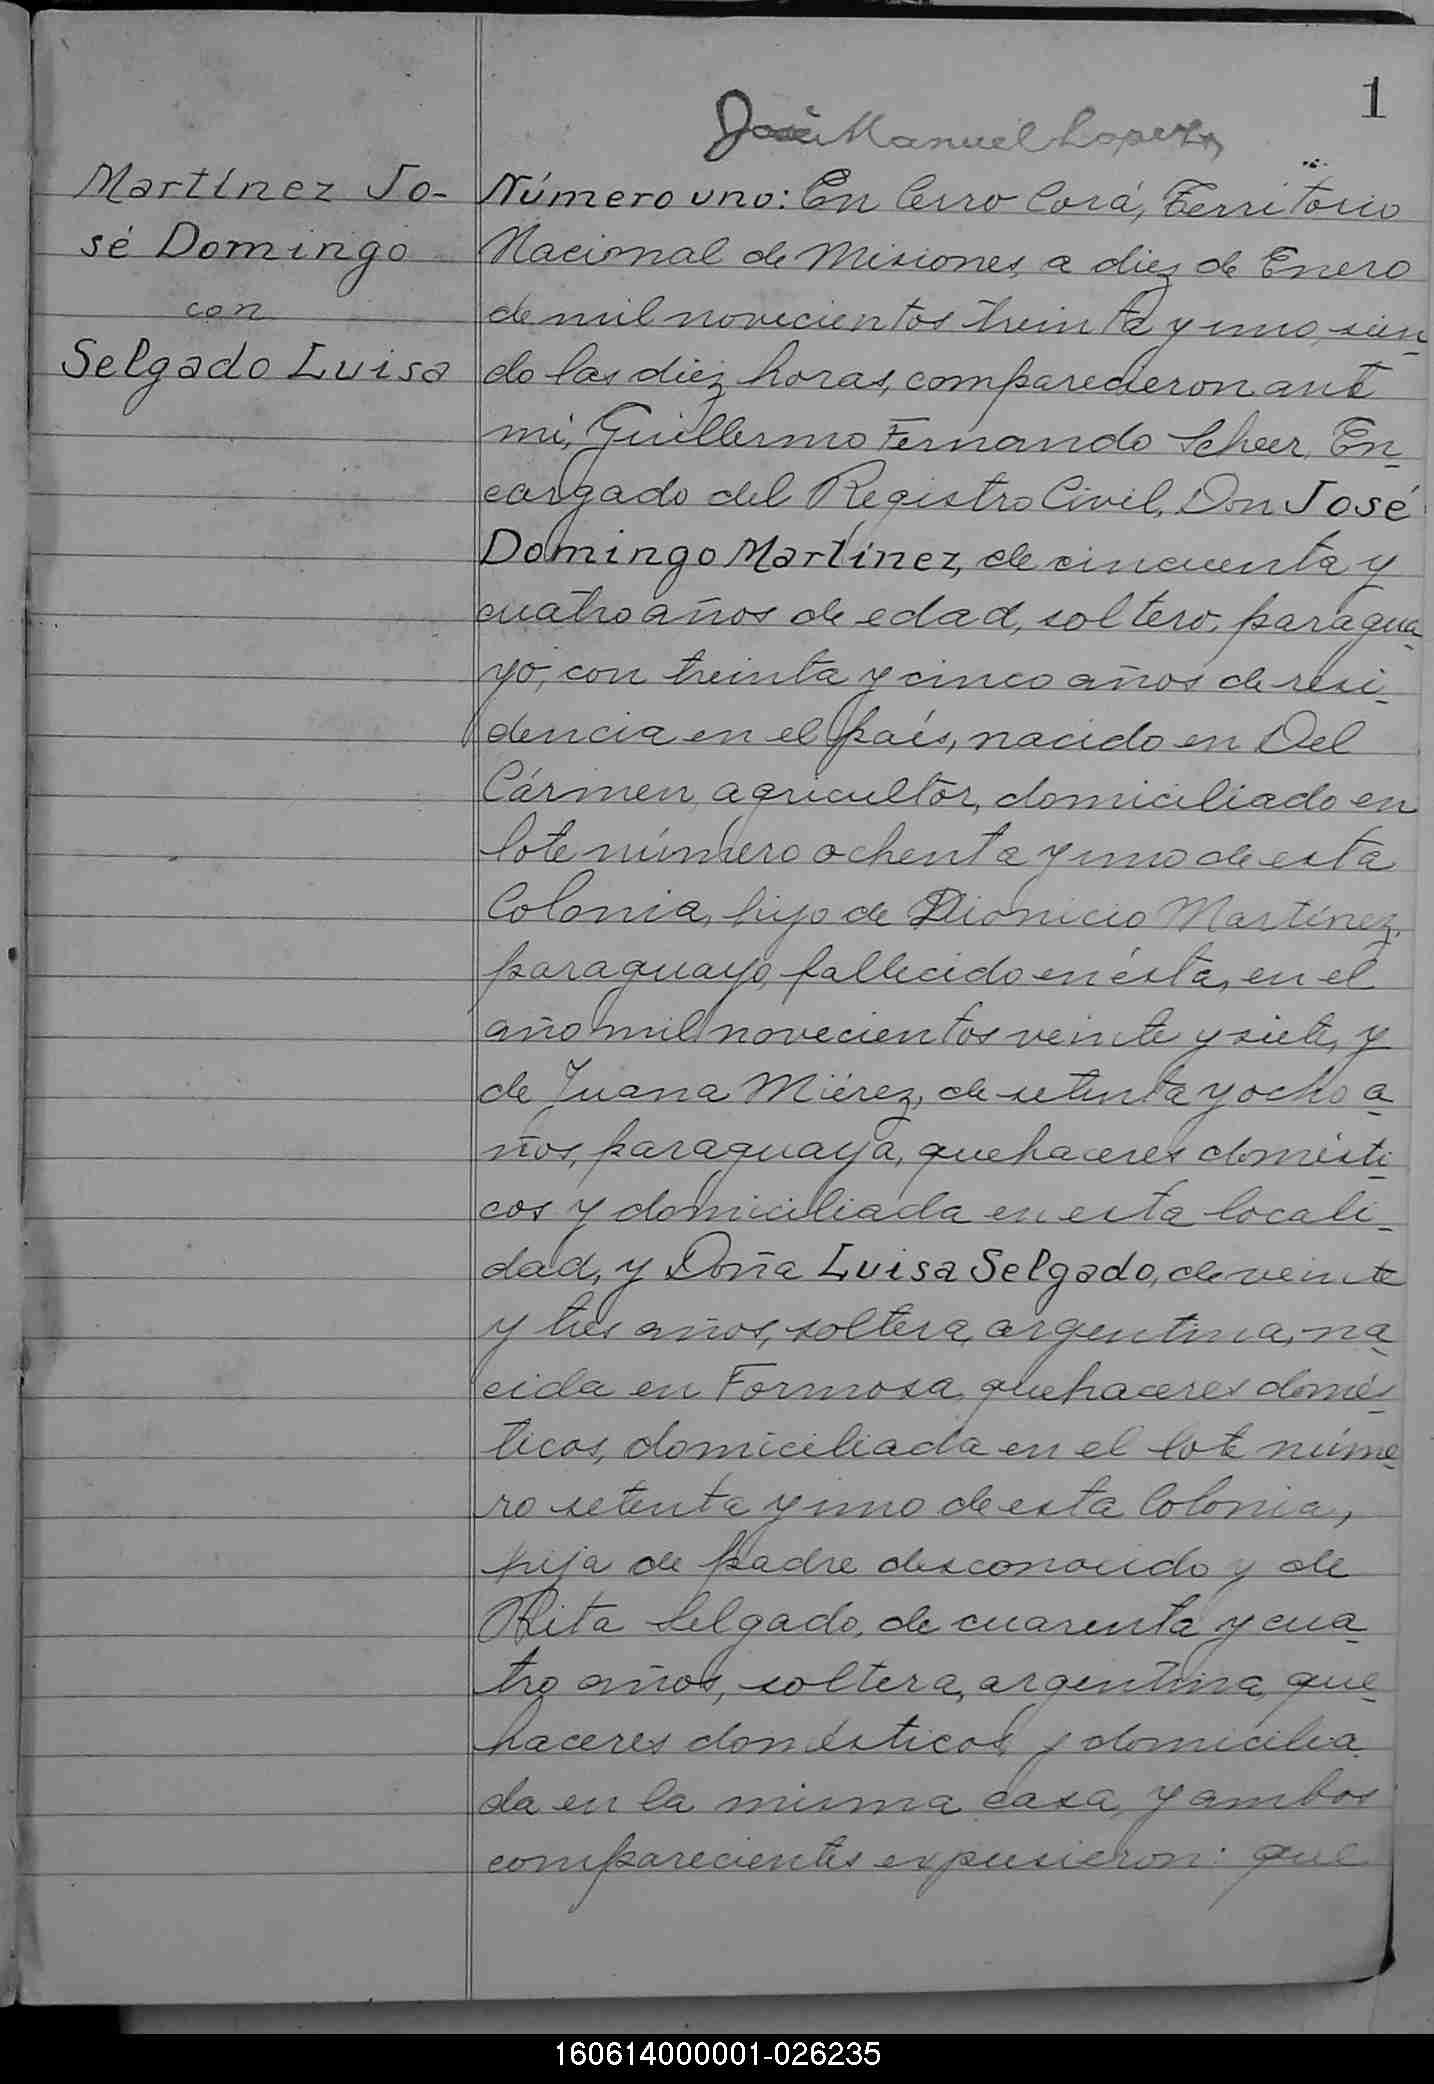 1
José Manuel Lopez
Martínez Jo-
sé Domingo
con
Selgado Luisa
Número uno: En Cerro Corá, Territorio
Nacional de Misiones, a diez de Enero
de mil novecientos treinta y uno, sien-
do las diez horas, comparecieron ante
mi, Guillermo Fernando Scheer, En-
cargado del Registro Civil, Don José
Domingo Martínez, de cincuenta y
cuatro años de edad, soltero, paragua-
yo, con treinta y cinco años de resi-
dencia en el país, nacido en Del
Cármen, agricultor, domiciliado en
lote número ochenta y uno de esta
Colonia, hijo de Dionicio Martínez,
paraguayo, fallecido en ésta, en el
año mil novecientos veinte y siete, y
de Juana Miérez, de setenta y ocho a-
ños, paraguaya, quehaceres domésti-
cos y domiciliada en esta locali-
dad, y Doña Luisa Selgado, de veinte
y tres años, soltera, argentina, na-
cida en Formosa, quehaceres domés-
ticos, domiciliada en el lote núme-
ro setenta y uno de esta Colonia,
hija de padre desconocido y de
Rita Selgado, de cuarenta y cua-
tro años, soltera, argentina, que-
haceres domésticos y domicilia-
da en la misma casa, y ambos
comparecientes expusieron: que
160614000001-026235